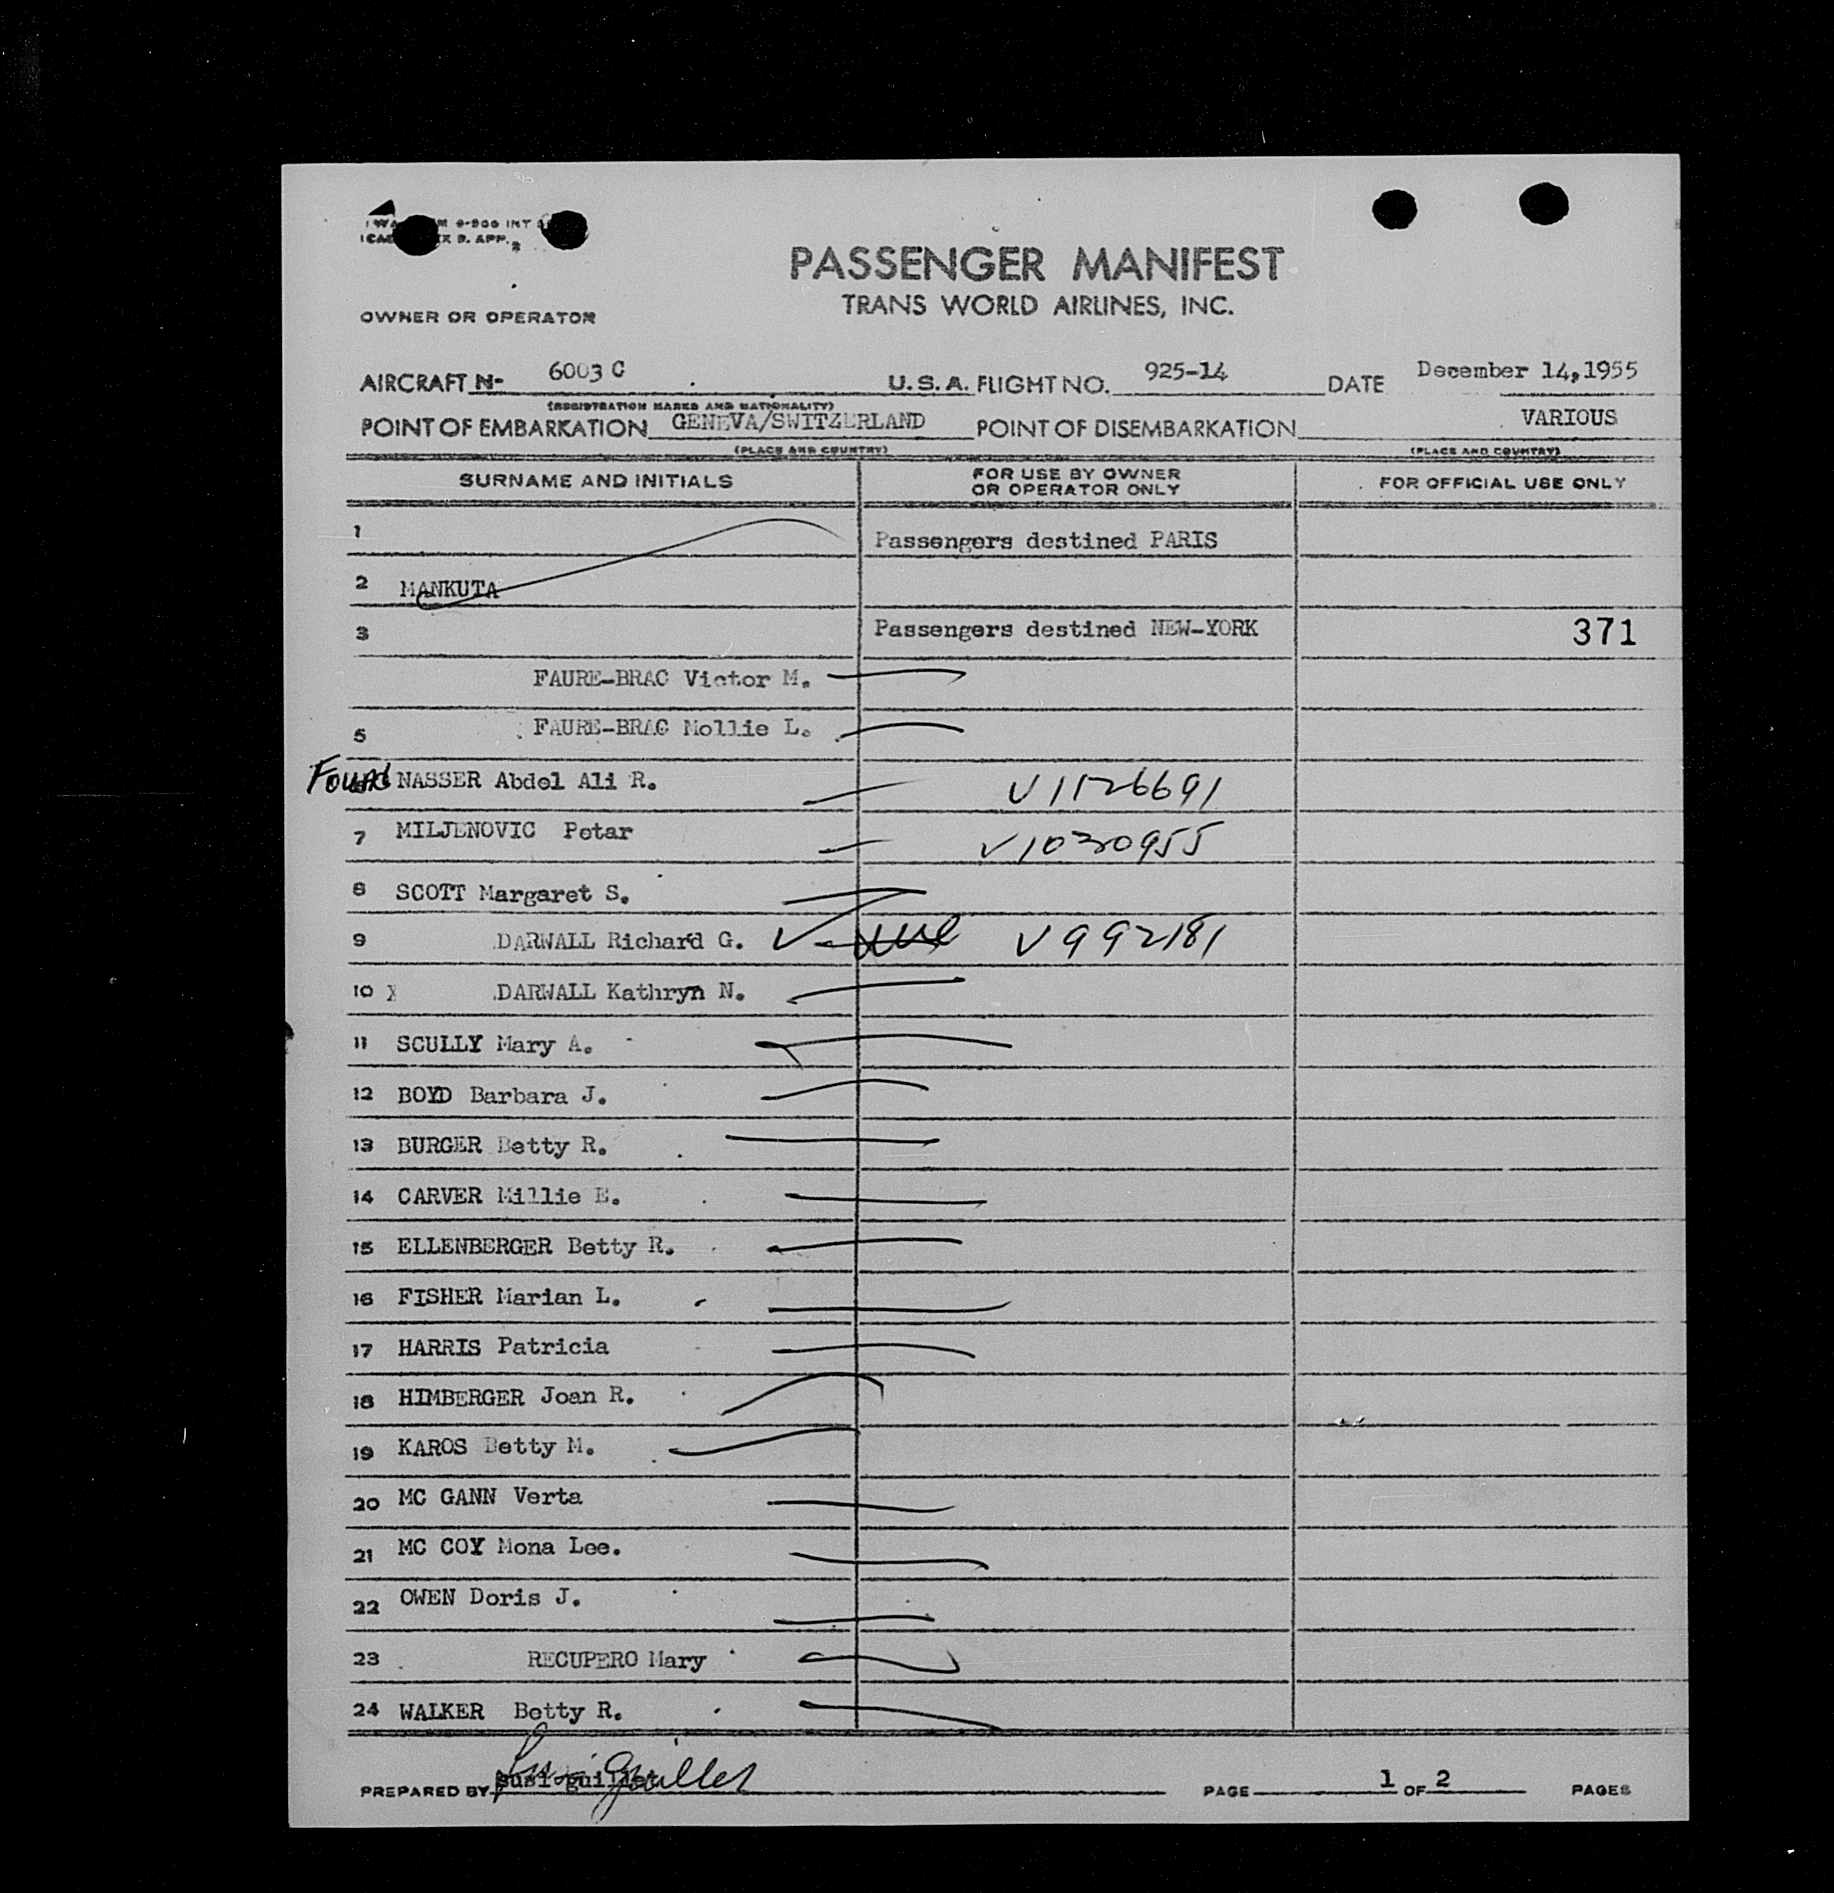 PASSENGER MANIFEST
TRANS WORLD AIRLINES, INC.
OWNER OR OPERATOR
AIRCRAFT N- 6003 C U.S.A. FLIGHT NO. 925-14 DATE December 14,1955
(REGISTRATION MARKS AND NATIONALITY)
POINT OF EMBARKATION GENEVA/SWITZERLAND POINT OF DISEMBARKATION VARIOUS
(PLACE AND COUNTRY) (PLACE AND COUNTRY)
SURNAME AND INITIALS FOR USE BY OWNER OR OPERATOR ONLY FOR OFFICIAL USE ONLY
1 Passengers destined PARIS
2 MANKUTA
3 Passengers destined NEW-YORK 371
FAURE-BRAC Victor M.
5 FAURE-BRAC Mollie L.
Found NASSER Abdel Ali R. V1126691
7 MILJENOVIC Petar V1030955
8 SCOTT Margaret S.
9 DARWALL Richard G. V992181
10 DARWALL Kathryn N.
11 SCULLY Mary A.
12 BOYD Barbara J.
13 BURGER Betty R.
14 CARVER Millie E.
15 ELLENBERGER Betty R.
16 FISHER Marian L.
17 HARRIS Patricia
18 HIMBERGER Joan R.
19 KAROS Betty M.
20 MC GANN Verta
21 MC COY Mona Lee.
22 OWEN Doris J.
23 RECUPERO Mary
24 WALKER Betty R.
PREPARED BY susi guillet PAGE 1 OF 2 PAGES